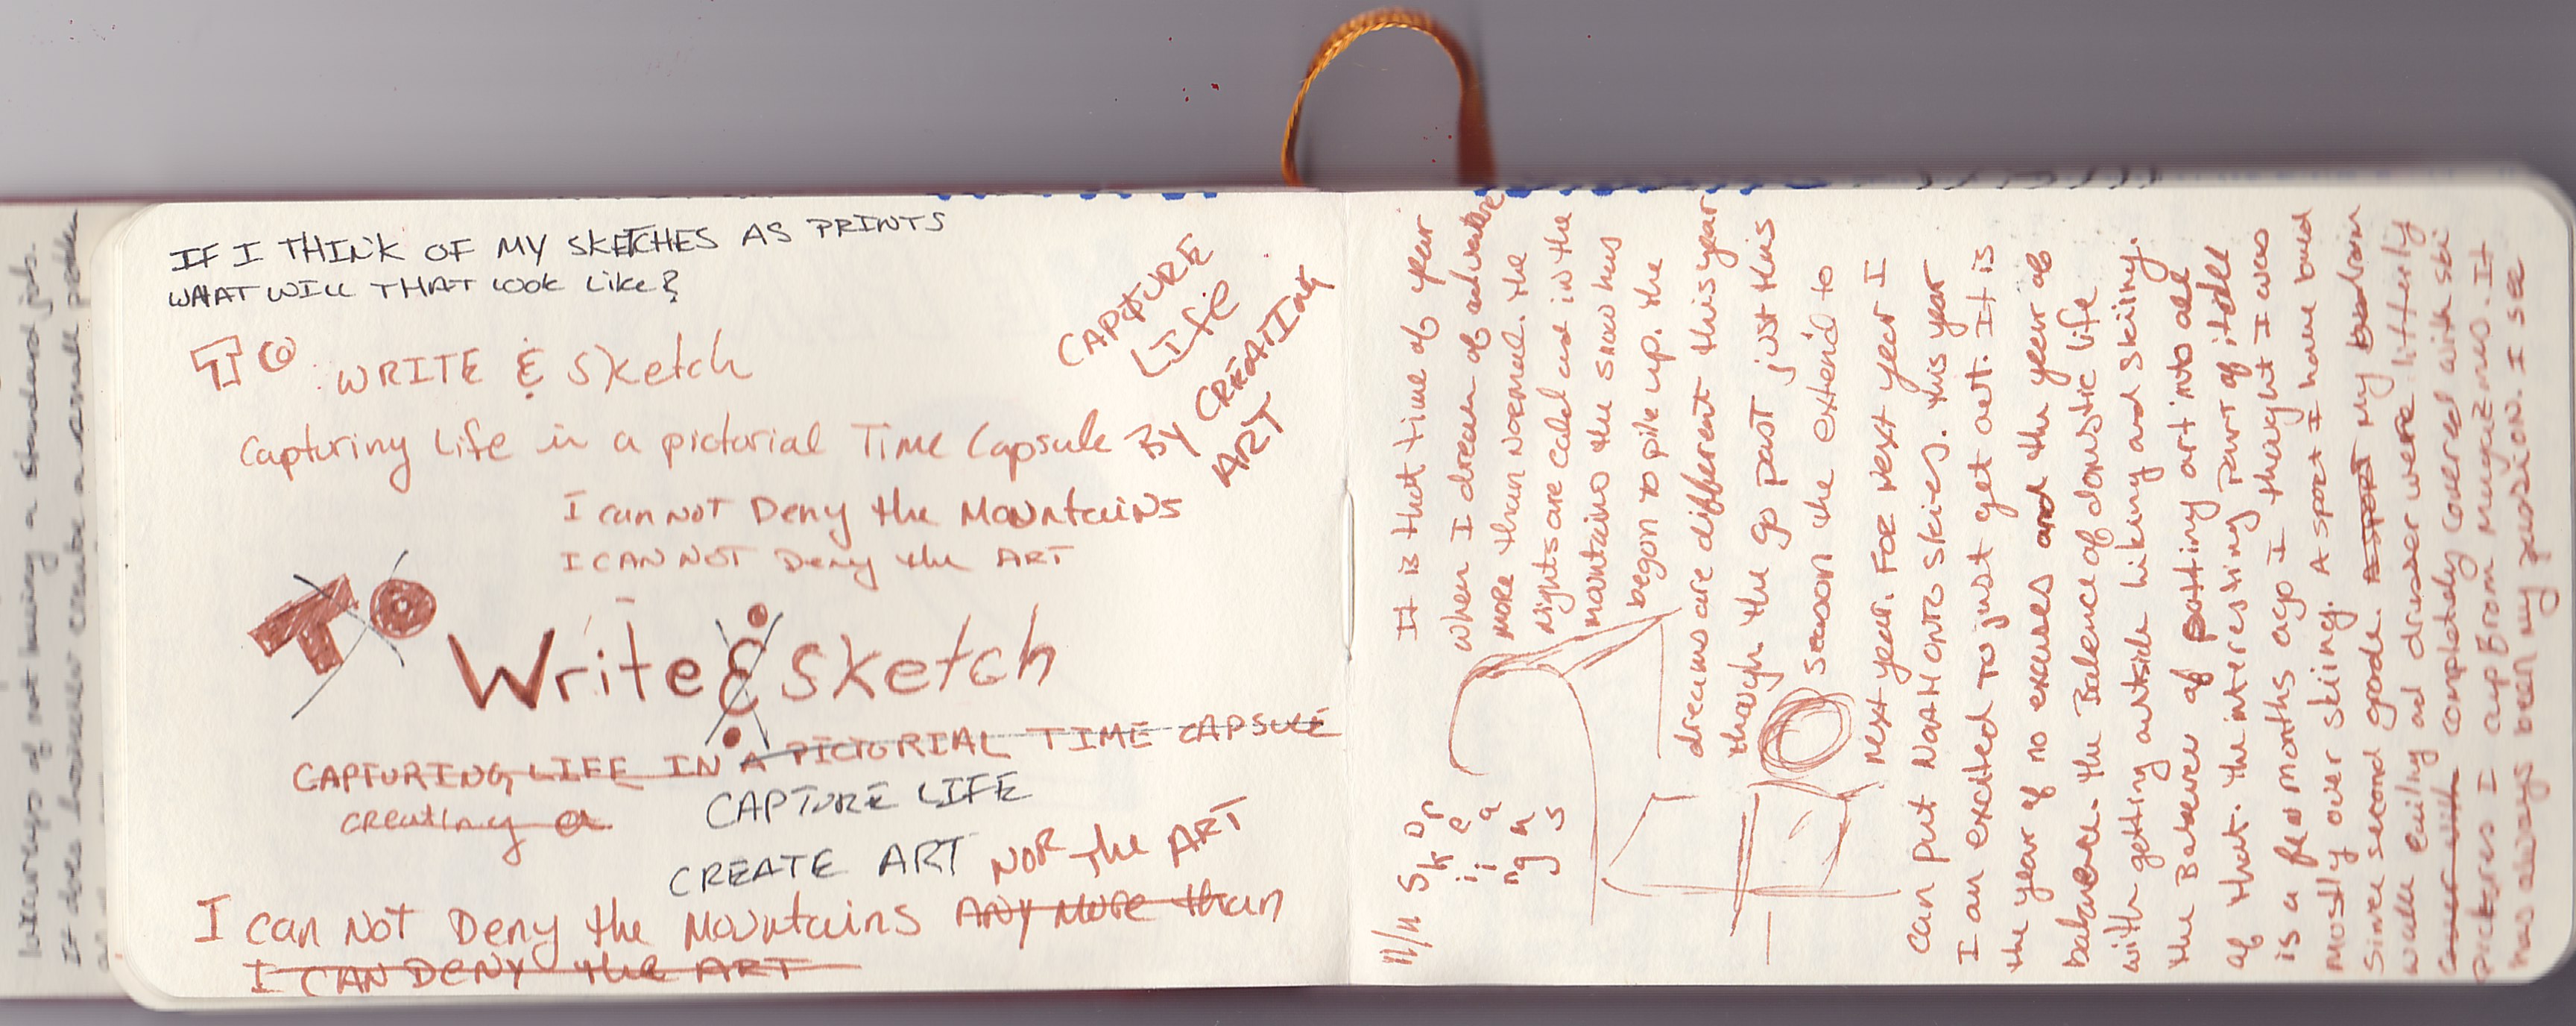 IF I THINK OF MY SKETCHES AS PRINTS
WHAT WILL THAT LOOK LIKE?
TO WRITE & Sketch
Capturing Life in a pictorial Time Capsule
CAPTURE
LIFE
By CREATING
ART
I can NOT Deny the Mountains
I CAN NOT Deny the ART
TO
Write & Sketch
CAPTURING LIFE IN A PICTORIAL TIME CAPSULE
creating a
CAPTURE LIFE
CREATE ART
NOR the ART
I can NOT Deny the Mountains ANY MORE than
I CAN DENY the ART
11/11 Skiing Dreams
It is that time of year
when I dream of adventure
more than normal. the
nights are cold and in the
mountains the snow has
begon to pile up. the
dreams are different this year
though the go past just this
season the extend to
next year. For Next year I
can put North onto skies. this year
I am excited to just get out. It is
the year of no excuses and the year of
balance. the Balence of domstic life
with getting outside hiking and skiing.
the Balance of putting art into all
of that. the interesting part of it all
is a few months ago I thought I was
mostly over skiing. A sport I have loved
since second grade. A sport My
walls ceiling and dresser were litterly
cover with completely covered with ski
pictures I cup from Magazines. It
has always been my passion. I see
of not having a standard job.
It does however create a small